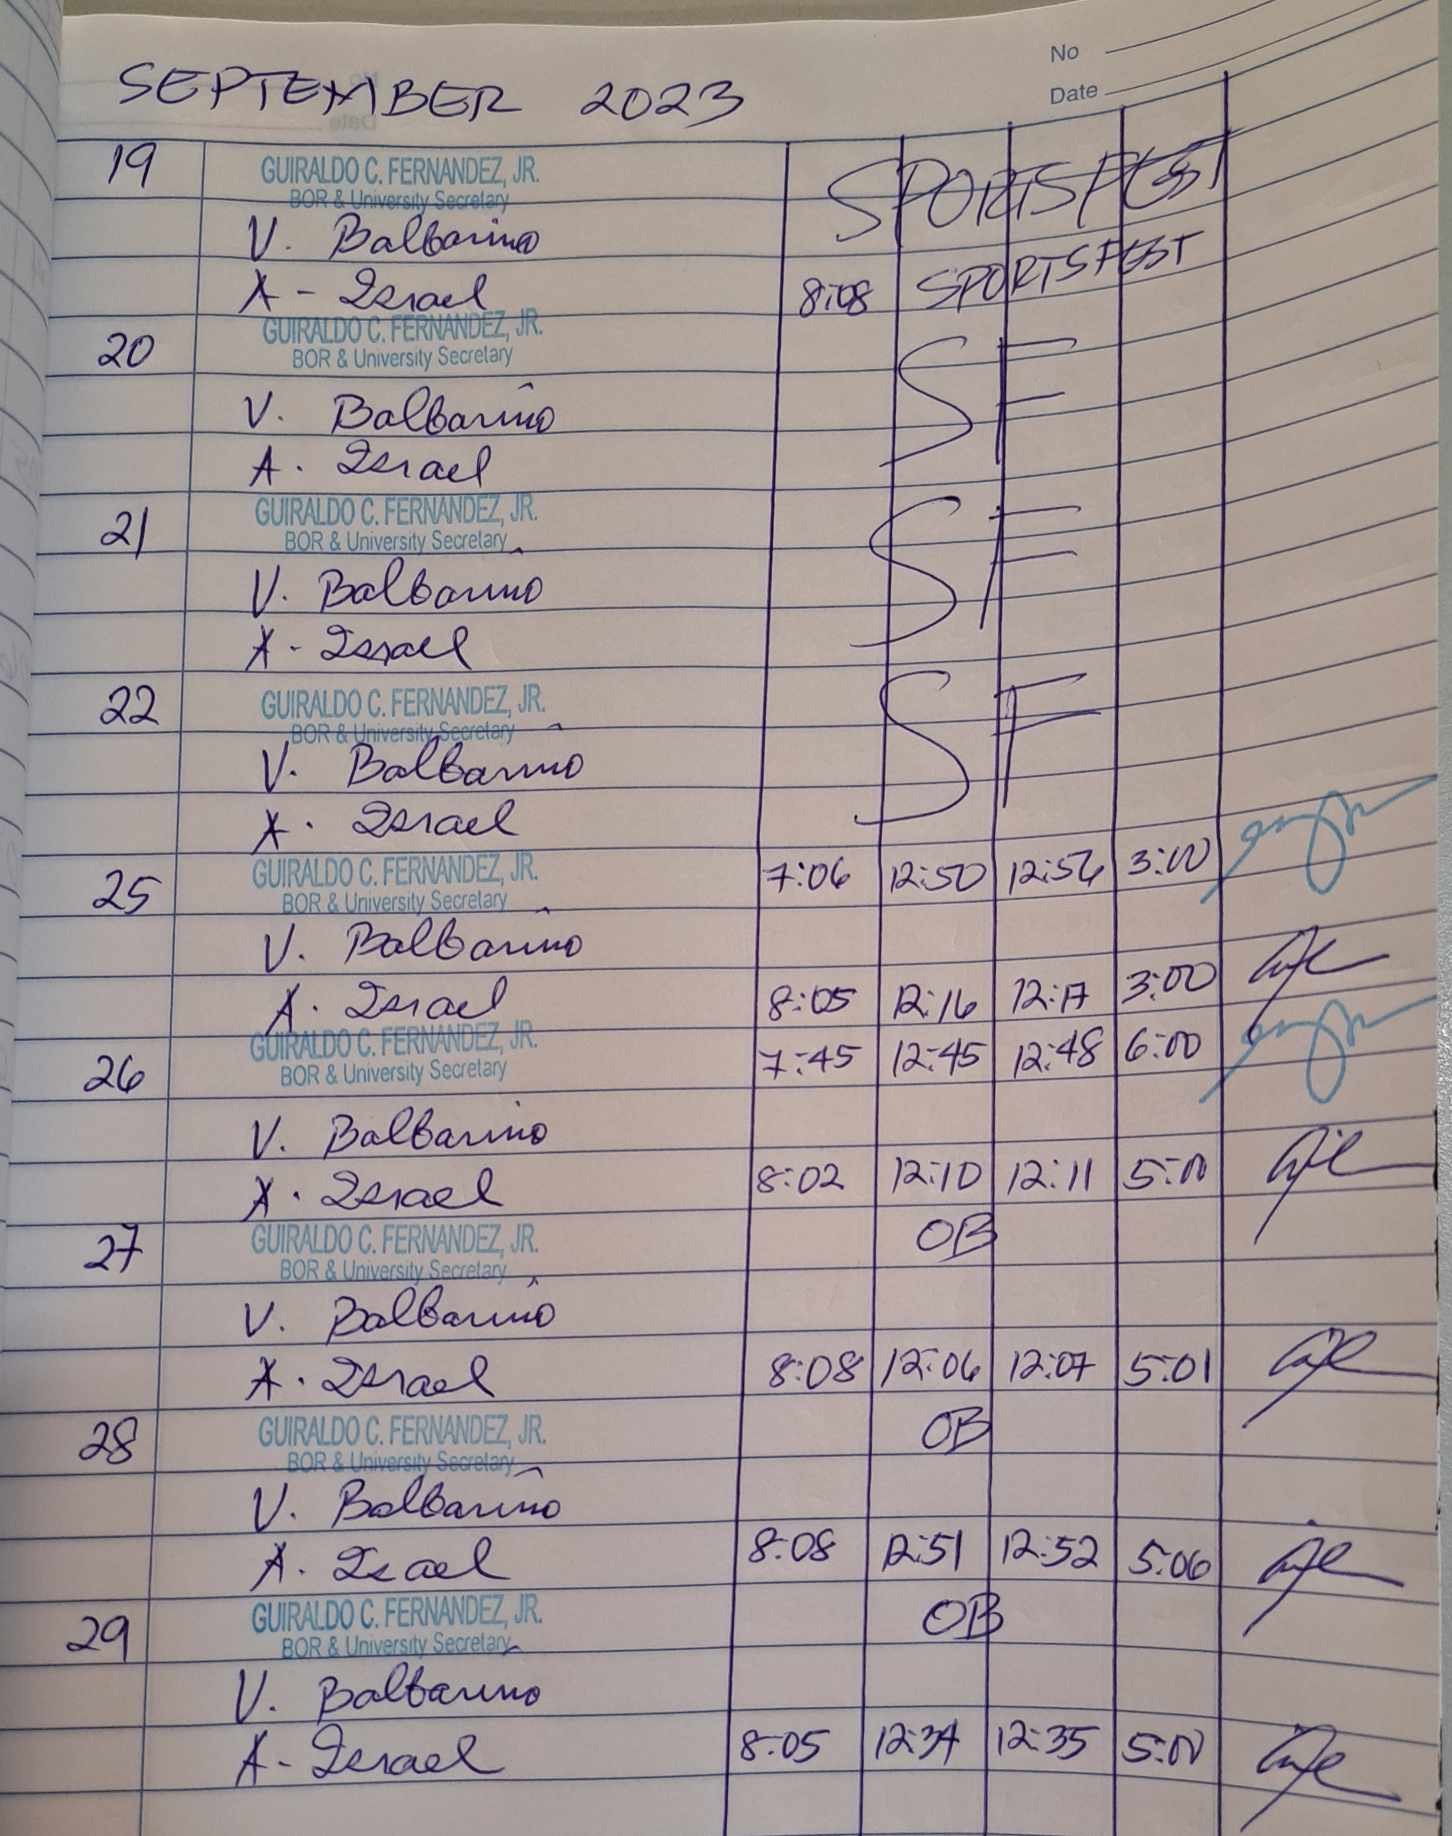 No
Date
SEPTEMBER 2023
19 GUIRALDO C. FERNANDEZ, JR. SPORTSFEST
BOR & University Secretary
V. Balbarino
A - Israel 8:08 SPORTSFEST
20 GUIRALDO C. FERNANDEZ, JR. SF
BOR & University Secretary
V. Balbarino
A. Israel
21 GUIRALDO C. FERNANDEZ, JR. SF
BOR & University Secretary
V. Balbarino
A - Israel
22 GUIRALDO C. FERNANDEZ, JR. SF
BOR & University Secretary
V. Balbarino
A. Israel
25 GUIRALDO C. FERNANDEZ, JR. 7:06 12:50 12:56 3:00
BOR & University Secretary
V. Balbarino
A. Israel 8:05 12:16 12:17 3:00
26 GUIRALDO C. FERNANDEZ, JR. 7:45 12:45 12:48 6:00
BOR & University Secretary
V. Balbarino
A. Israel 8:02 12:10 12:11 5:00
27 GUIRALDO C. FERNANDEZ, JR. OB
BOR & University Secretary
V. Balbarino
A. Israel 8:08 12:06 12:07 5:01
28 GUIRALDO C. FERNANDEZ, JR. OB
BOR & University Secretary
V. Balbarino
A. Israel 8:08 12:51 12:52 5:06
29 GUIRALDO C. FERNANDEZ, JR. OB
BOR & University Secretary
V. Balbarino
A - Israel 8:05 12:34 12:35 5:00